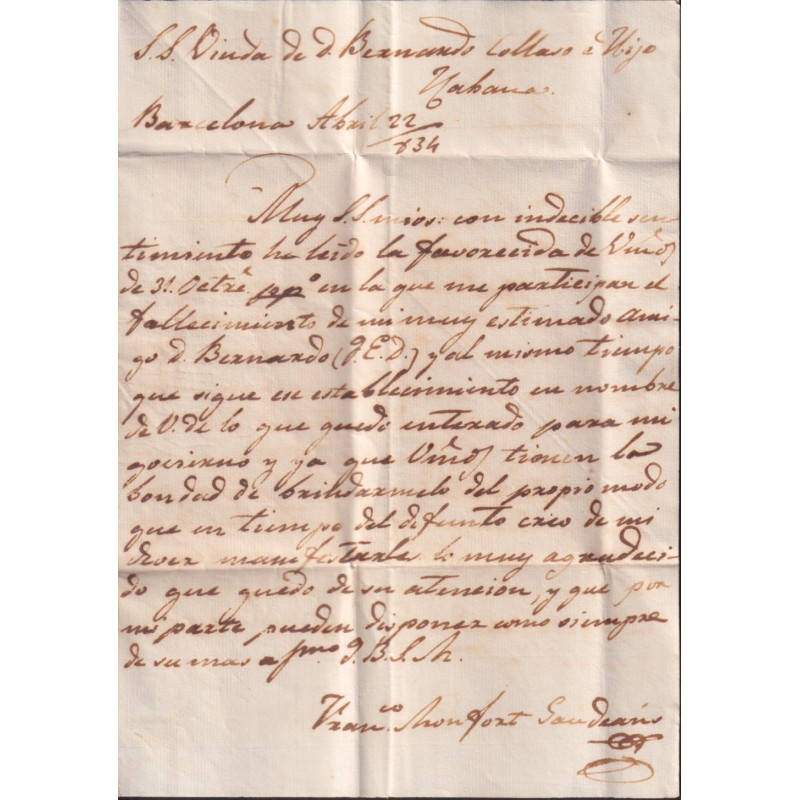 S.S. Viuda de d. Bernardo Collaso é Hijo
Habana.
Barcelona Abril 22/834
Muy S.S. mios: con indecible sen
timiento he leido la favorecida de Vmds
de 31. Octre. ppo en la que me participan el
fallecimiento de mi muy estimado ami-
go d. Bernardo (q.E.D.) y al mismo tiempo
que sigue su establecimiento en nombre
de V. de lo que quedo enterado para mi
govierno y ya que Vmds tienen la
bondad de brindarmelo del propio modo
que en tiempo del difunto creo de mi
dever manifestarles lo muy agradeci-
do que quedo de su atencion, y que por
mi parte pueden disponer como siempre
de su mas afmo. q.B.S.M.
Franco. Monfort